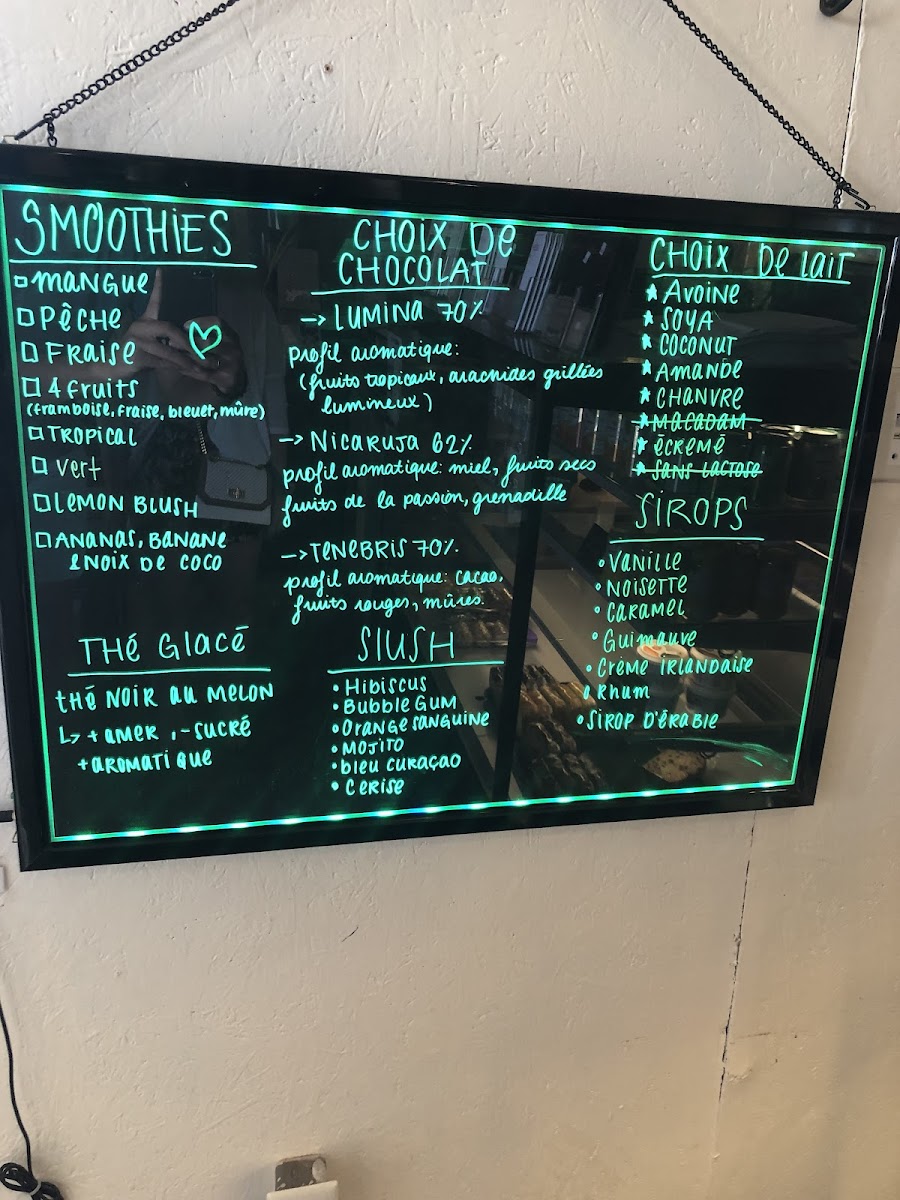 SMOOTHiES
MANGUE
PÊCHE
FRAISE
4 FRUITS
(framboise, fraise, bleuet, mûre)
TROPICAL
Vert
LEMON BLUSH
ANANAS, BANANE
& NOIX DE COCO
THÉ GLACÉ
THÉ NOIR AU MELON
↳ + AMER , - SUCRÉ
+ AROMATIQUE
CHOIX De
CHOCOLAT
→ LUMINA 70%
profil aromatique:
(fruits tropicaux, aracnides grillées
lumineux)
→ NICARUJA 62%
profil aromatique: miel, fruits secs
fruits de la passion, grenadille
→ TENEBRIS 70%.
profil aromatique: cacao,
fruits rouges, mûres.
SlUSH
• HIBISCUS
• BUBBLE GUM
• ORANGE SANGUINE
• MOJITO
• bleu CURAÇAO
• CERISE
CHOIX De LaiT
★ AVOINE
★ SOYA
★ COCONUT
★ AMANDE
★ CHANVRE
★ MACADAM
★ ÉCREMÉ
★ SANS LACTOSE
SIROPS
• VANILLE
• NOISETTE
• CARAMEL
• GUIMAUVE
• CRÈME IRLANDAISE
• RHUM
• SIROP D'ÉRABLE